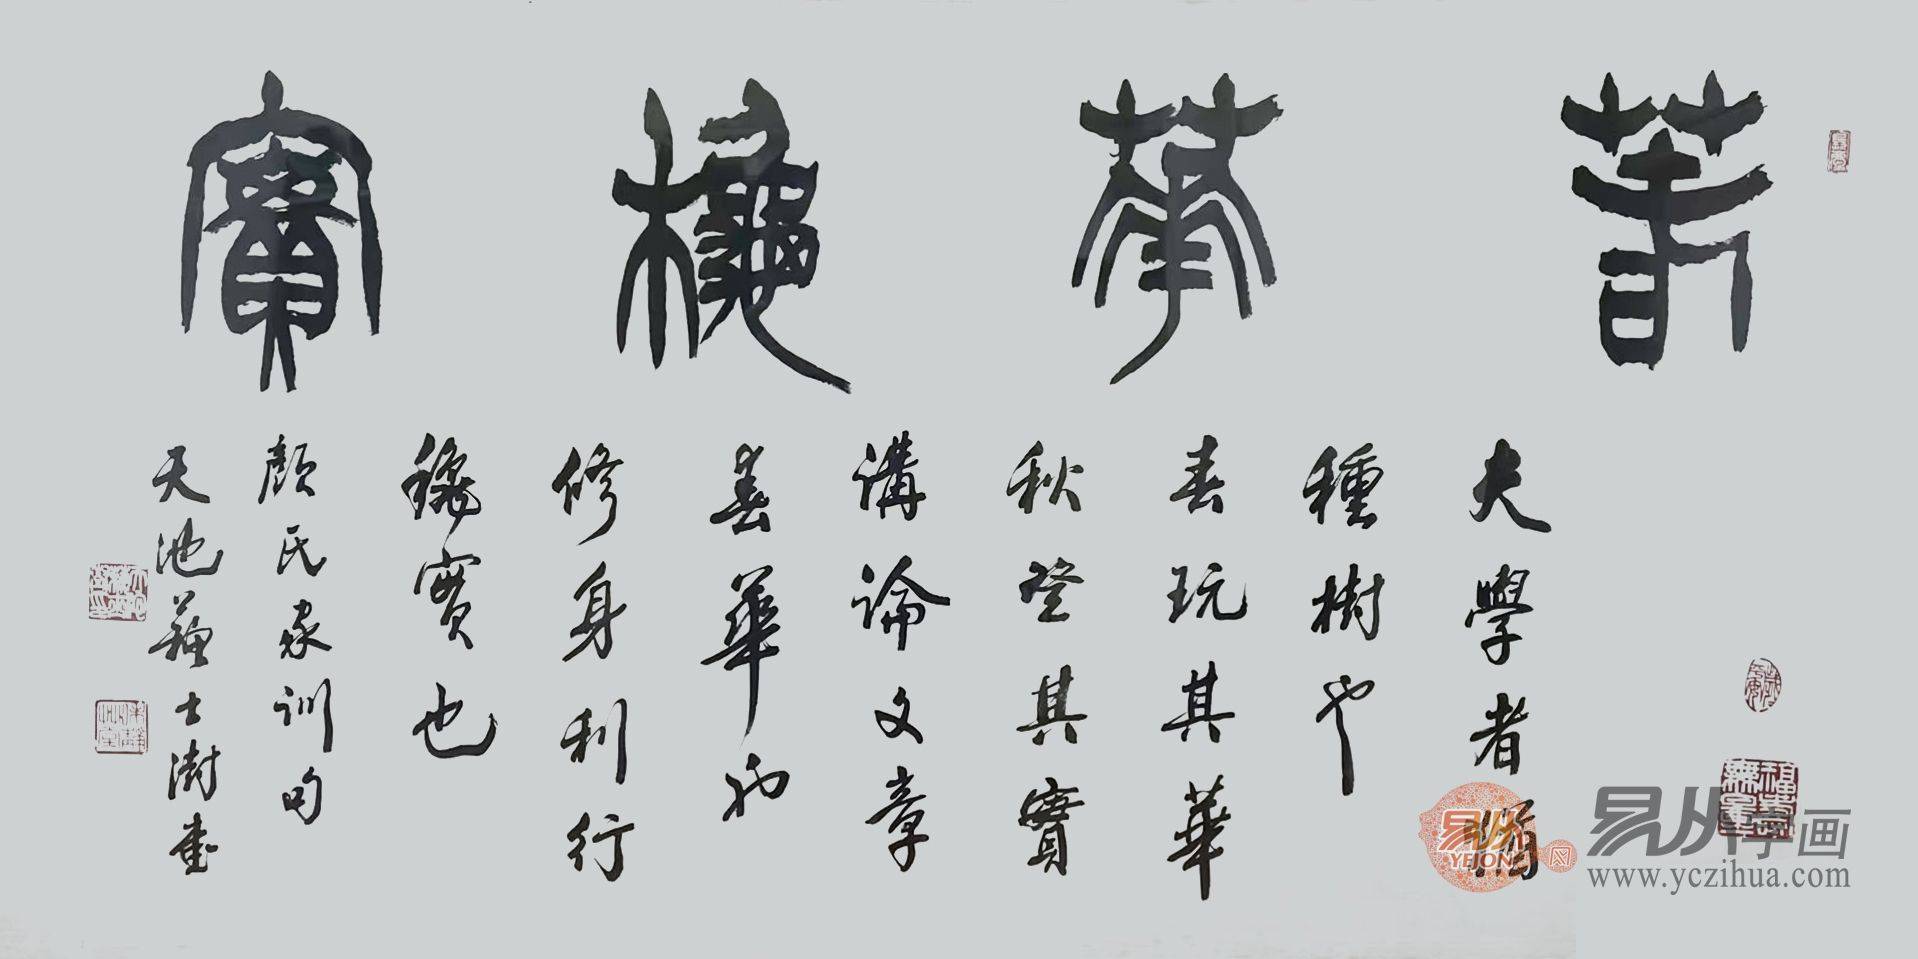 春華秋實
夫學者猶
種樹也
春玩其華
秋登其實
講論文章
春華也
修身利行
秋實也
顏氏家訓句
天池蘇士澍書
易从字画
YEJONE
www.yczihua.com